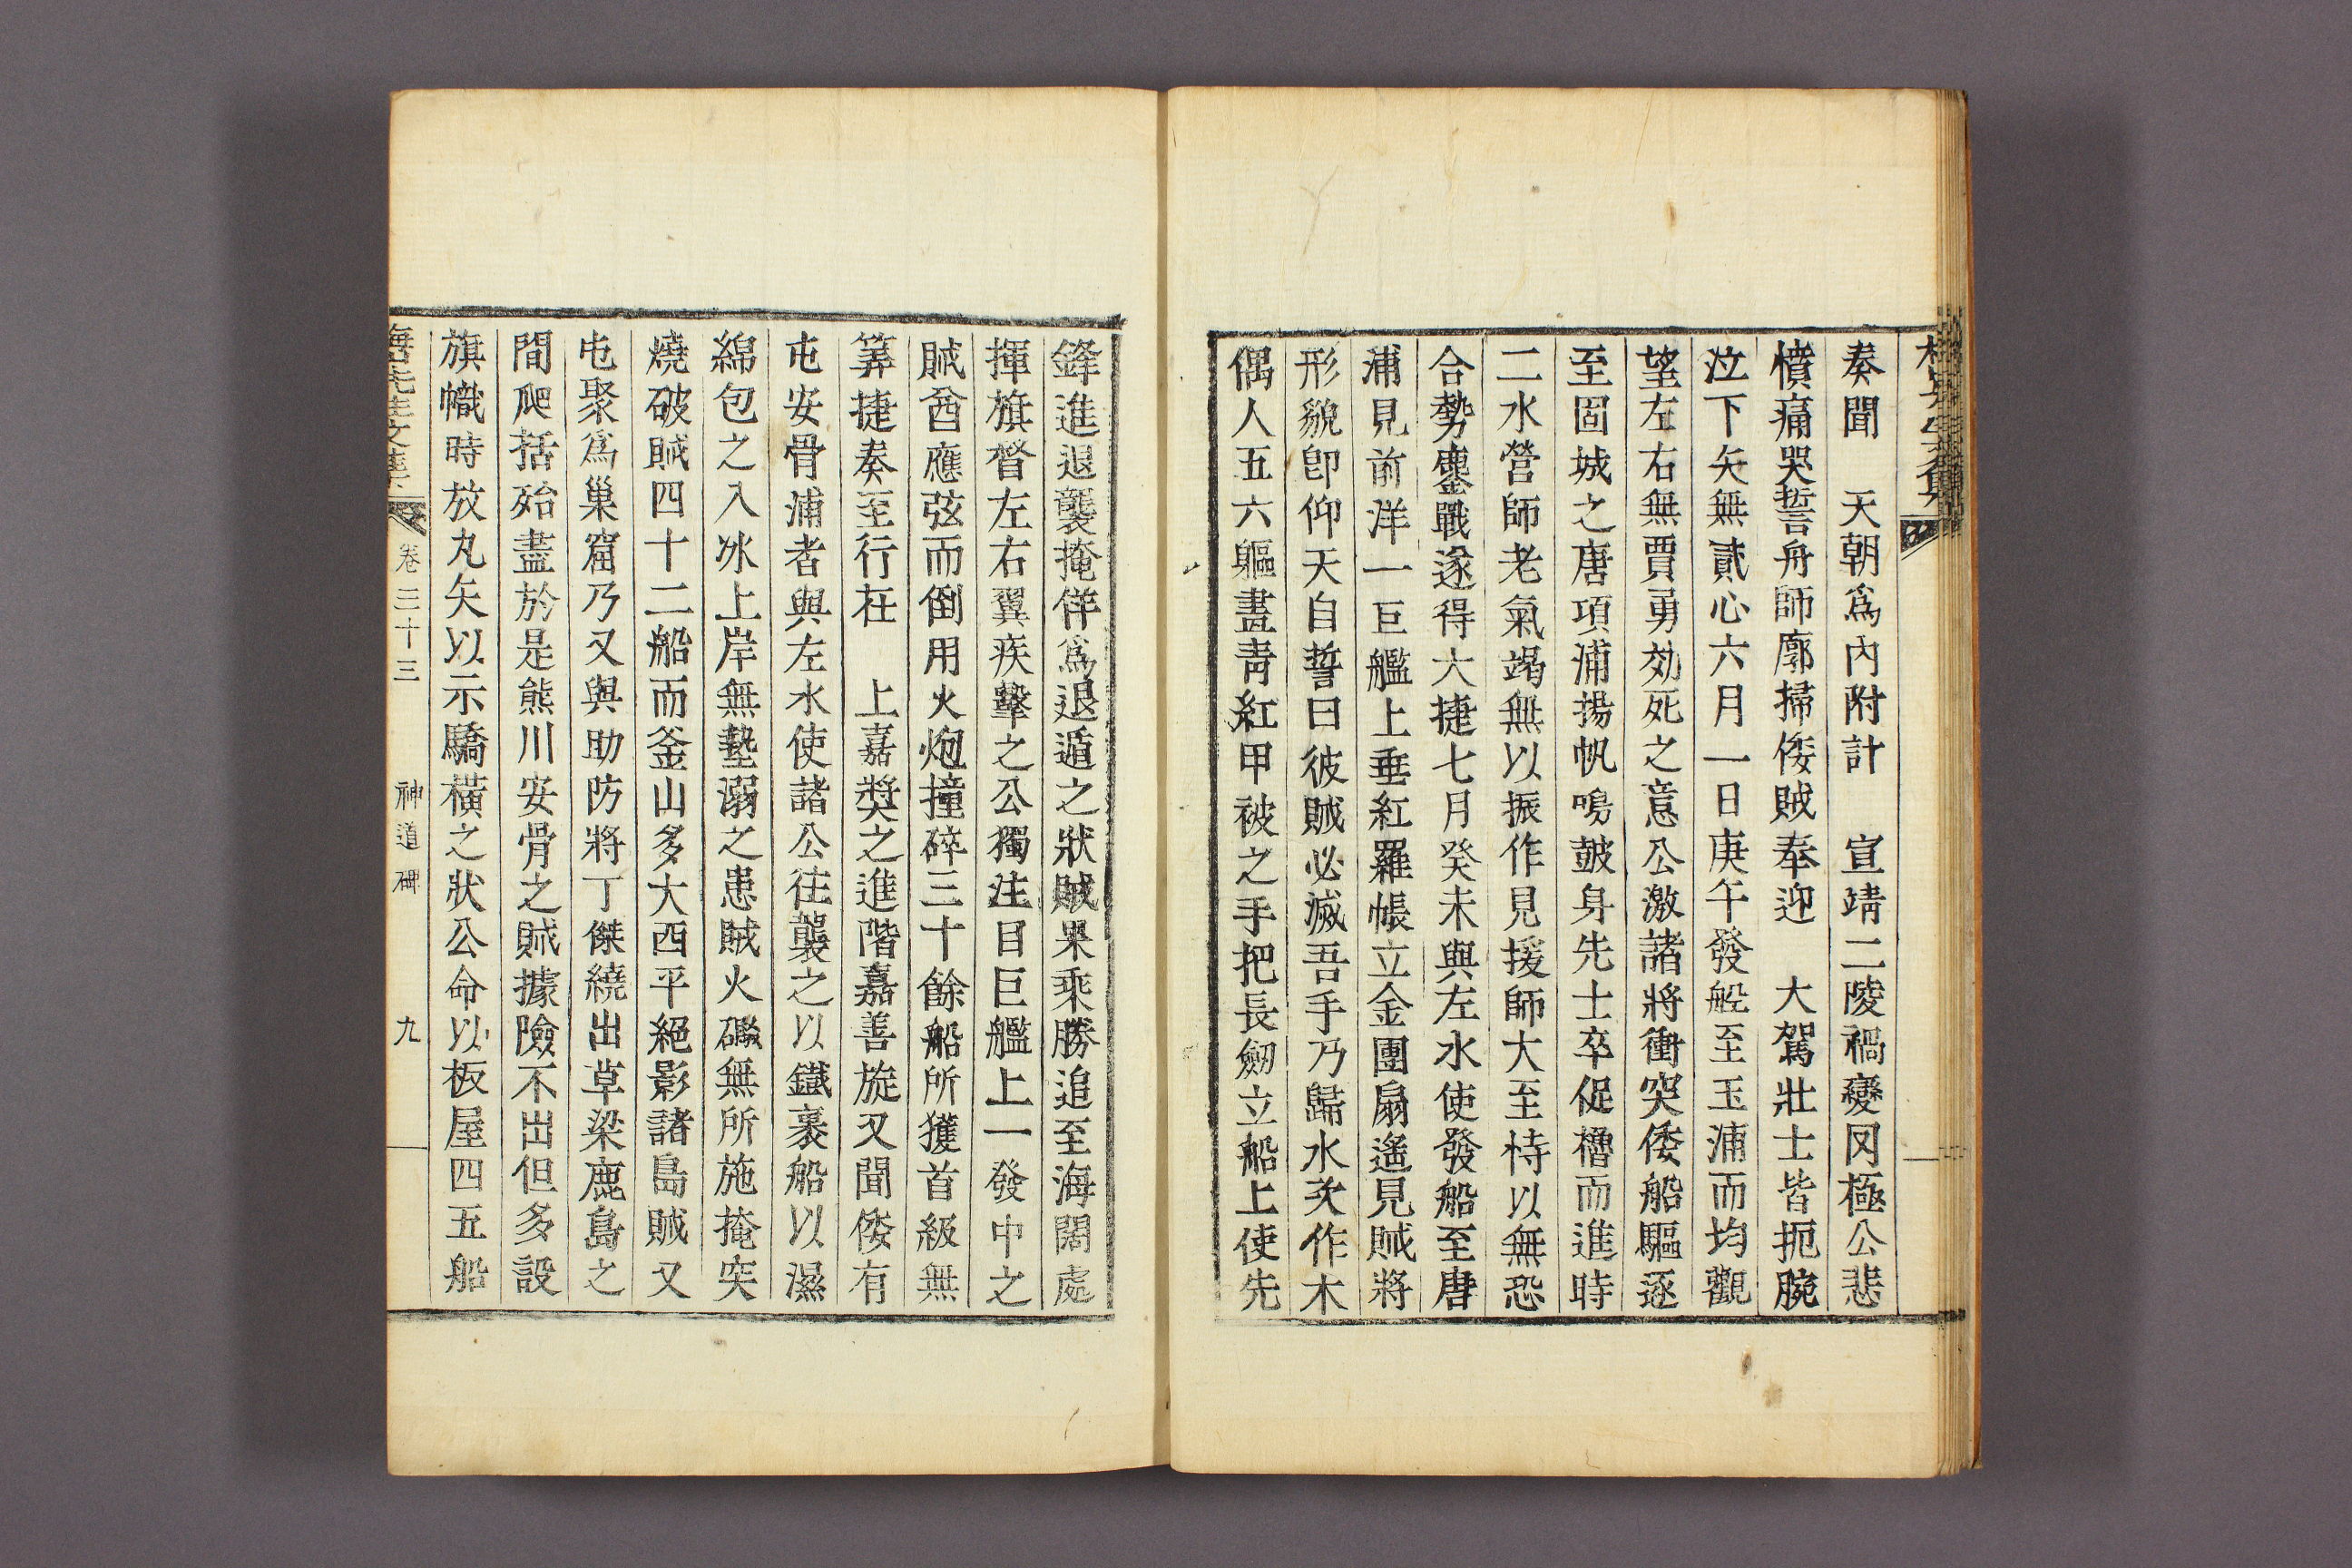 奏聞　天朝爲內附計　宣靖二陵禍變罔極公悲
憤痛哭誓舟師廓掃倭賊奉迎　大駕壯士皆扼腕
泣下矢無貳心六月一日庚午發船至玉浦而均觀
望左右無賈勇効死之意公激諸將衝突倭船驅逐
至固城之唐項浦揚帆鳴皷身先士卒促櫓而進時
二水營師老氣竭無以振作見援師大至恃以無恐
合勢鏖戰遂得大捷七月癸未與左水使發船至唐
浦見前洋一巨艦上垂紅羅帳立金團扇遙見賊將
形貌卽仰天自誓曰彼賊必滅吾手乃歸水次作木
偶人五六軀畫靑紅甲被之手把長劒立船上使先
鋒進退襲掩佯爲退遁之狀賊果乘勝追至海闊處
揮旗督左右翼疾擊之公獨注目巨艦上一發中之
賊酋應弦而倒用火炮撞碎三十餘船所獲首級無
筭捷奏至行在　上嘉奬之進階嘉善旋又聞倭有
屯安骨浦者與左水使諸公往襲之以鐵裹船以濕
綿包之入水上岸無墊溺之患賊火礟無所施掩突
燒破賊四十二船而釜山多大西平絕影諸島賊又
屯聚爲巢窟乃又與助防將丁傑繞出草梁鹿島之
間爬括殆盡於是熊川安骨之賊據險不出但多設
旗幟時放丸矢以示驕橫之狀公命以板屋四五船
先生文集
卷三十三
神道碑
九